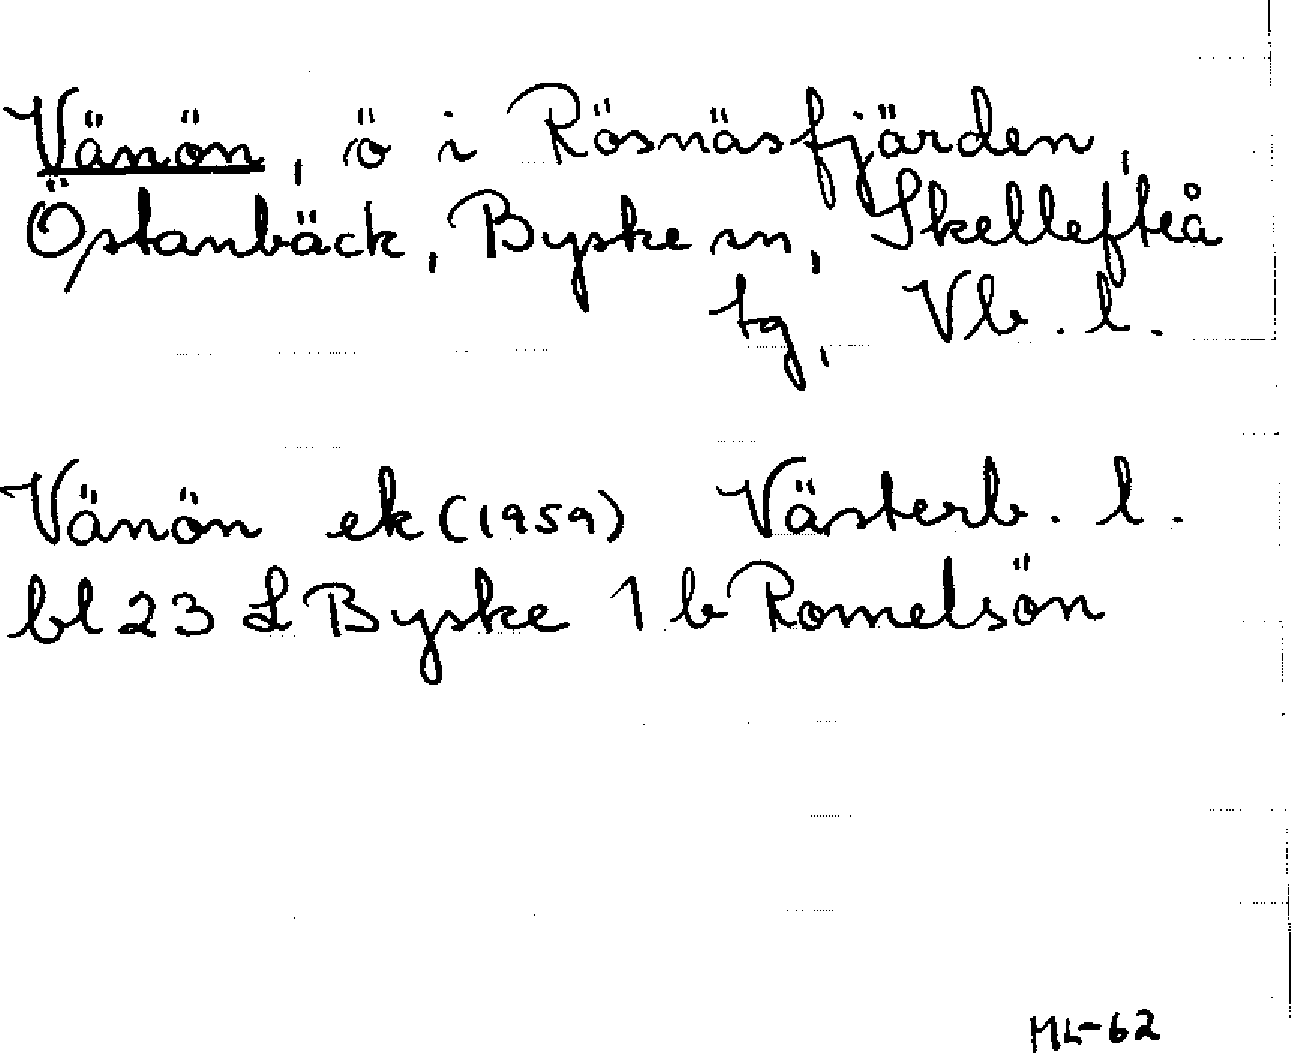 Vänön, ö i Rösnäsfjärden,
Östanbäck, Byske sn, Skellefteå
tg, Vb. l.
Vänön ek (1959) Västerb. l.
bl 23 L Byske 1 b Romelsön
ML-62